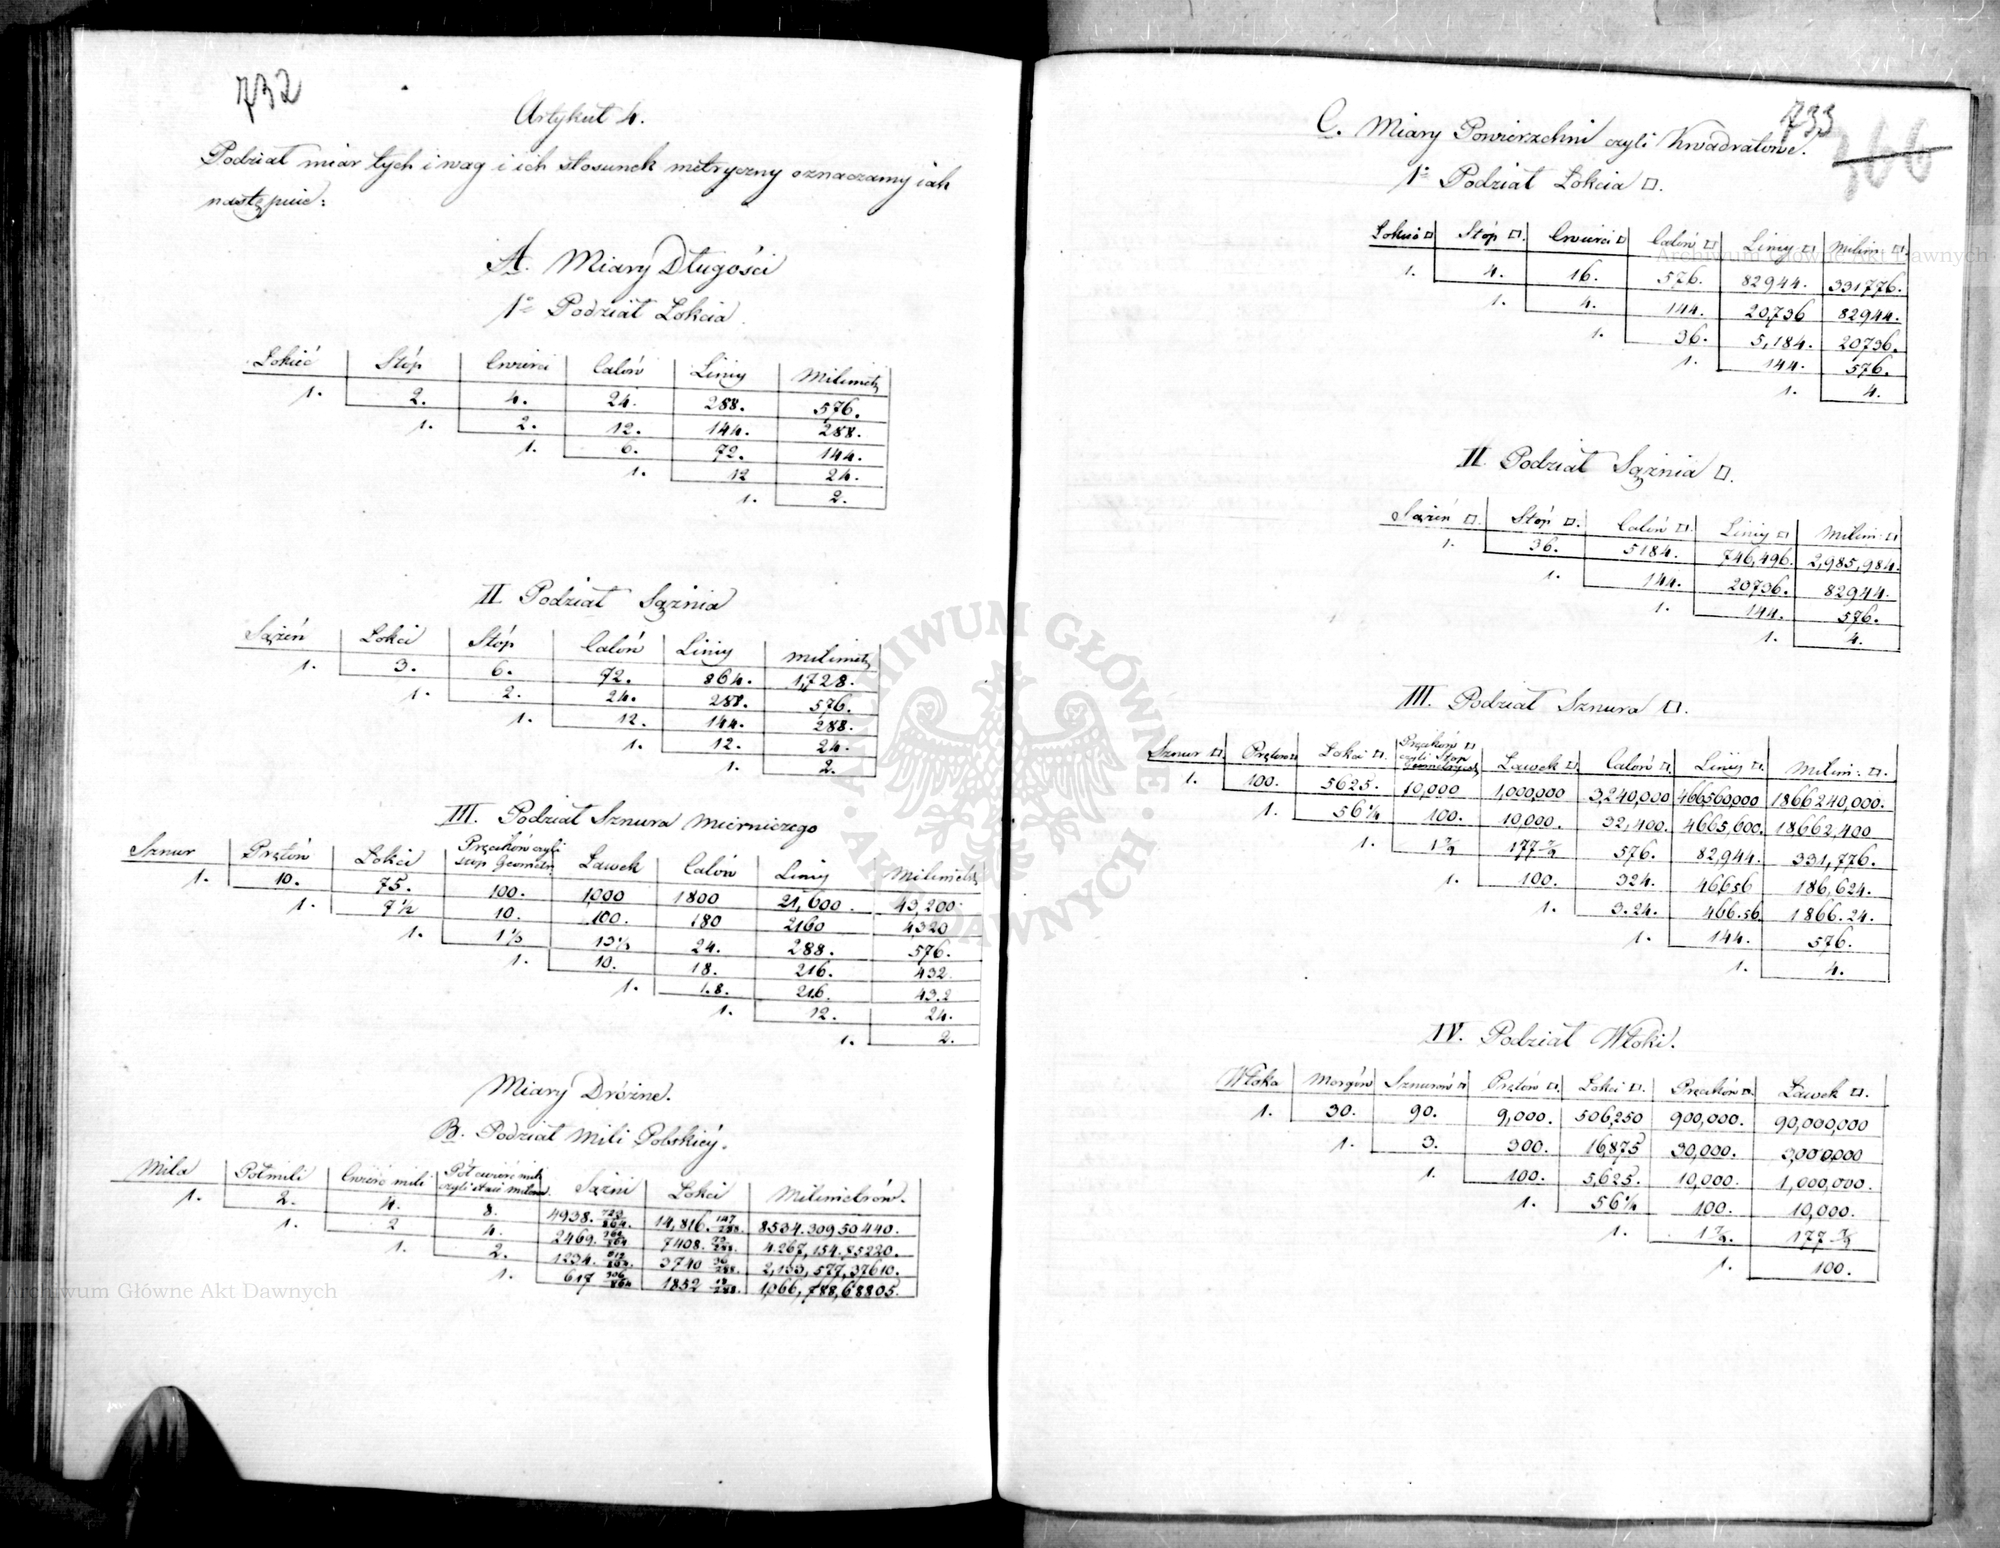 732
Artykuł 4.
Podział miar tych i wag i ich stosunek metryczny oznaczamy iak
następuie:
A. Miary Długości
1º Podział Łokcia.
Łokieć Stóp Cwierci Calów Liniy Milimetr
1. 2. 4. 24. 288. 576.
1. 2. 12. 144. 288.
1. 6. 72. 144.
1. 12 24.
1. 2.
II Podział Sążnia
Sążeń Łokci Stóp Calów Liniy Milimetr
1. 3. 6. 72. 864. 1,728.
1. 2. 24. 288. 576.
1. 12. 144. 288.
1. 12. 24.
1. 2.
III. Podział Sznura Mierniczego
Sznur Prętów Łokci Pręcików czyli stop Geometr. Ławek Calów Liniy Milimetr
1. 10. 75. 100. 1,000 1800 21,600. 43,200.
1. 7½ 10. 100. 180 2160 4320
1. 1⅓ 13⅓ 24. 288. 576.
1. 10. 18. 216. 432.
1. 1.8. 21.6. 43.2
1. 12. 24.
1. 2.
Miary Dróżne.
B. Podział Mili Polskiéy.
Mila Półmili Cwierć mili Pół cwierć mili czyli staie milowe. Sążni Łokci Milimetrów.
1. 2. 4. 8. 4938. 14,816. 8534.309,50440.
1. 2 4. 2469. 7408. 4.267,154.85220.
1. 2. 1234. 3740 2,133,577,37610.
1. 617 1852 1,066,788,68805.
733
366
C. Miary Powierzchni czyli Kwadratowe.
1º Podział Łokcia □.
Łokieć □ Stóp □. Cwierci □ Calów □ Liniy □ Milim: □.
1. 4. 16. 576. 82944. 331776.
1. 4. 144. 20,736 82944.
1. 36. 5,184. 20736.
1. 144. 576.
1. 4.
II. Podział Sążnia □.
Sążeń □. Stóp □. Calów □. Liniy □ Milim: □
1. 36. 5184. 746,496. 2,985,984.
1. 144. 20736. 82944.
1. 144. 576.
1. 4.
III. Podział Sznura □.
Sznur □. Prętów □ Łokci □. Pręcików □ czyli Stop Geometrycz. Ławek □. Calów □. Liniy □. Milim: □.
1. 100. 5625. 10,000 1,000,000 3,240,000 466560,000 1866240,000.
1. 56¼ 100. 10,000. 32,400. 4665,600. 18662,400
1. 1 7/9 177 7/9 576. 82,944. 331,776.
1. 100. 324. 46656 186,624.
1. 3.24. 466.56 1866.24.
1. 144. 576.
1. 4.
IV. Podział Włoki.
Włoka Morgów Sznurów □ Prętów □. Łokci □. Pręcików □. Ławek □.
1. 30. 90. 9,000. 506,250 900,000. 90,000,000
1. 3. 300. 16,875 30,000. 3,000,000
1. 100. 5,625. 10,000. 1,000,000.
1. 56¼ 100. 10,000.
1. 1 7/9. 177 7/9
1. 100.
ARCHIWUM GŁÓWNE AKT DAWNYCH
Archiwum Główne Akt Dawnych
Archiwum Główne Akt Dawnych